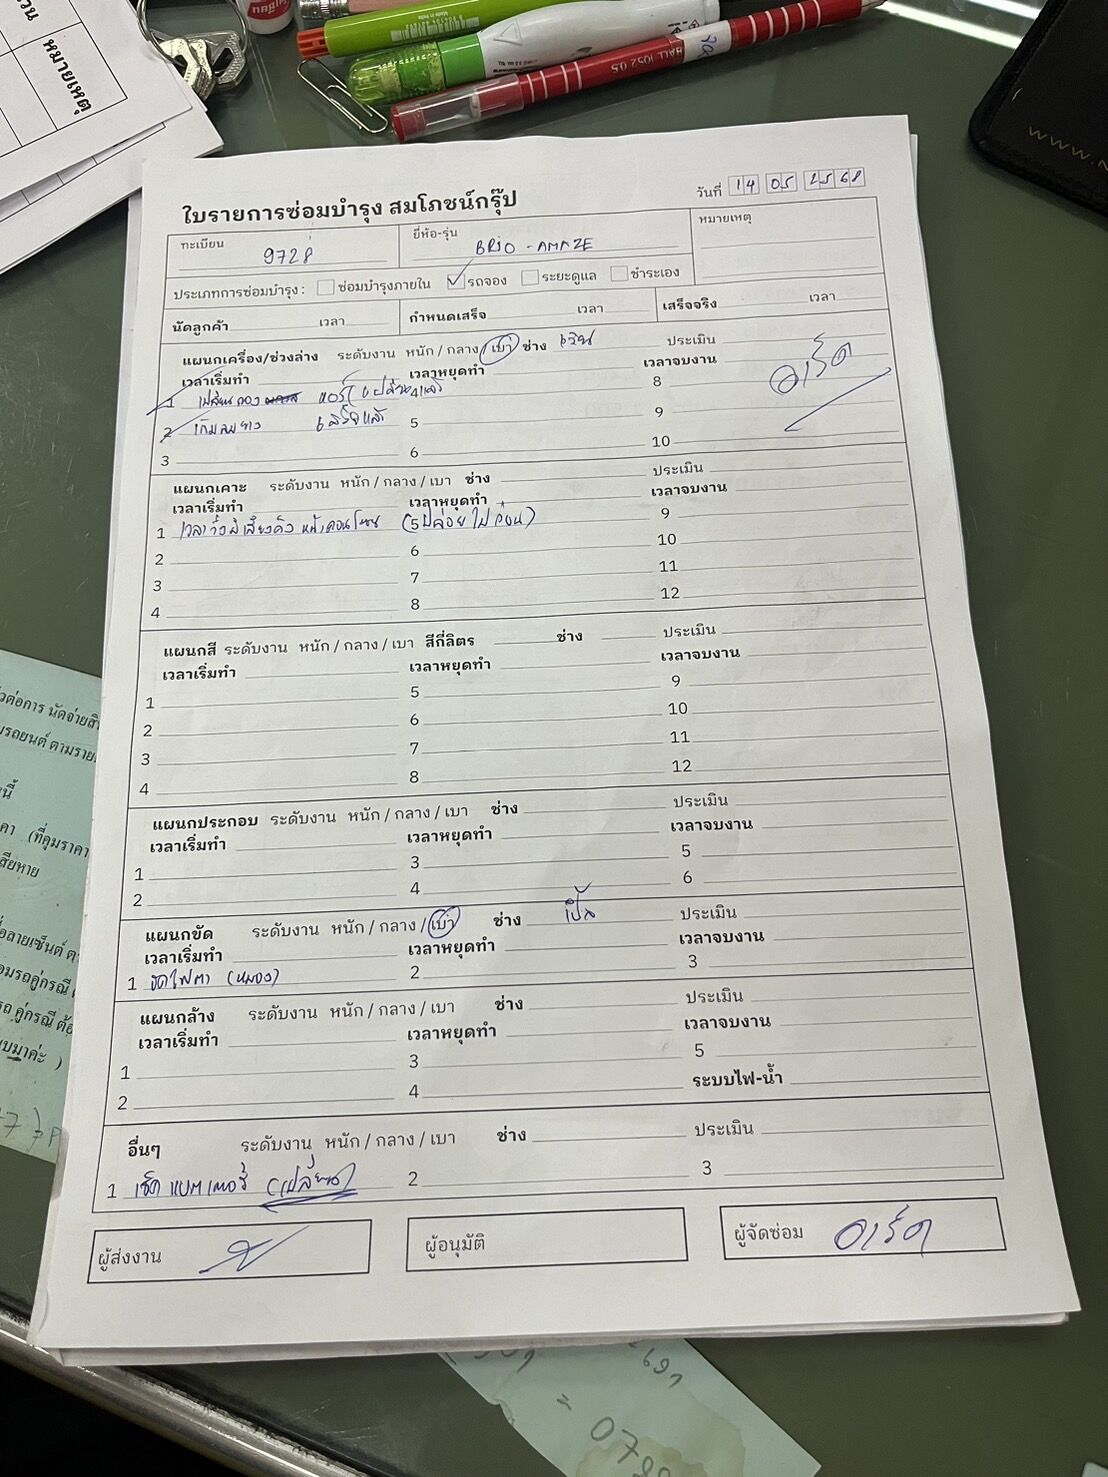 ใบรายการซ่อมบำรุง สมโภชน์กรุ๊ป
วันที่ 14 05 2568
ทะเบียน 9728 ยี่ห้อ-รุ่น BRIO - AMAZE หมายเหตุ
ประเภทการซ่อมบำรุง : ซ่อมบำรุงภายใน รถจอง ระยะดูแล ชำระเอง
นัดลูกค้า เวลา กำหนดเสร็จ เวลา เสร็จจริง เวลา
แผนกเครื่อง/ช่วงล่าง ระดับงาน หนัก / กลาง / เบา ช่าง ประเมิน
เวลาเริ่มทำ เวลาหยุดทำ เวลาจบงาน
1 เปลี่ยนกรอง แอร์ 4 8 อาร์ต
2 เติมลมยาง เรียบแล้ว 5 9
3 6 10
แผนกเคาะ ระดับงาน หนัก / กลาง / เบา ช่าง ประเมิน
เวลาเริ่มทำ เวลาหยุดทำ เวลาจบงาน
1 เวลาวิ่งมีเสียงดัง หน้าคอนโซน (5 ปล่อยไปก่อน) 9
2 6 10
3 7 11
4 8 12
แผนกสี ระดับงาน หนัก / กลาง / เบา สีกี่ลิตร ช่าง ประเมิน
เวลาเริ่มทำ เวลาหยุดทำ เวลาจบงาน
1 5 9
2 6 10
3 7 11
4 8 12
แผนกประกอบ ระดับงาน หนัก / กลาง / เบา ช่าง ประเมิน
เวลาเริ่มทำ เวลาหยุดทำ เวลาจบงาน
1 3 5
2 4 6
แผนกขัด ระดับงาน หนัก / กลาง / เบา ช่าง ประเมิน
เวลาเริ่มทำ เวลาหยุดทำ เวลาจบงาน
1 ขัดไฟตา (หมอง) 2 3
แผนกล้าง ระดับงาน หนัก / กลาง / เบา ช่าง ประเมิน
เวลาเริ่มทำ เวลาหยุดทำ เวลาจบงาน
1 3 5
2 4 ระบบไฟ-น้ำ
อื่นๆ ระดับงาน หนัก / กลาง / เบา ช่าง ประเมิน
1 เช็ค แบตเตอรี่ (เปลี่ยน) 2 3
ผู้ส่งงาน ผู้อนุมัติ ผู้จัดซ่อม อาร์ต
หมายเหตุ
BALL 1052 0.5